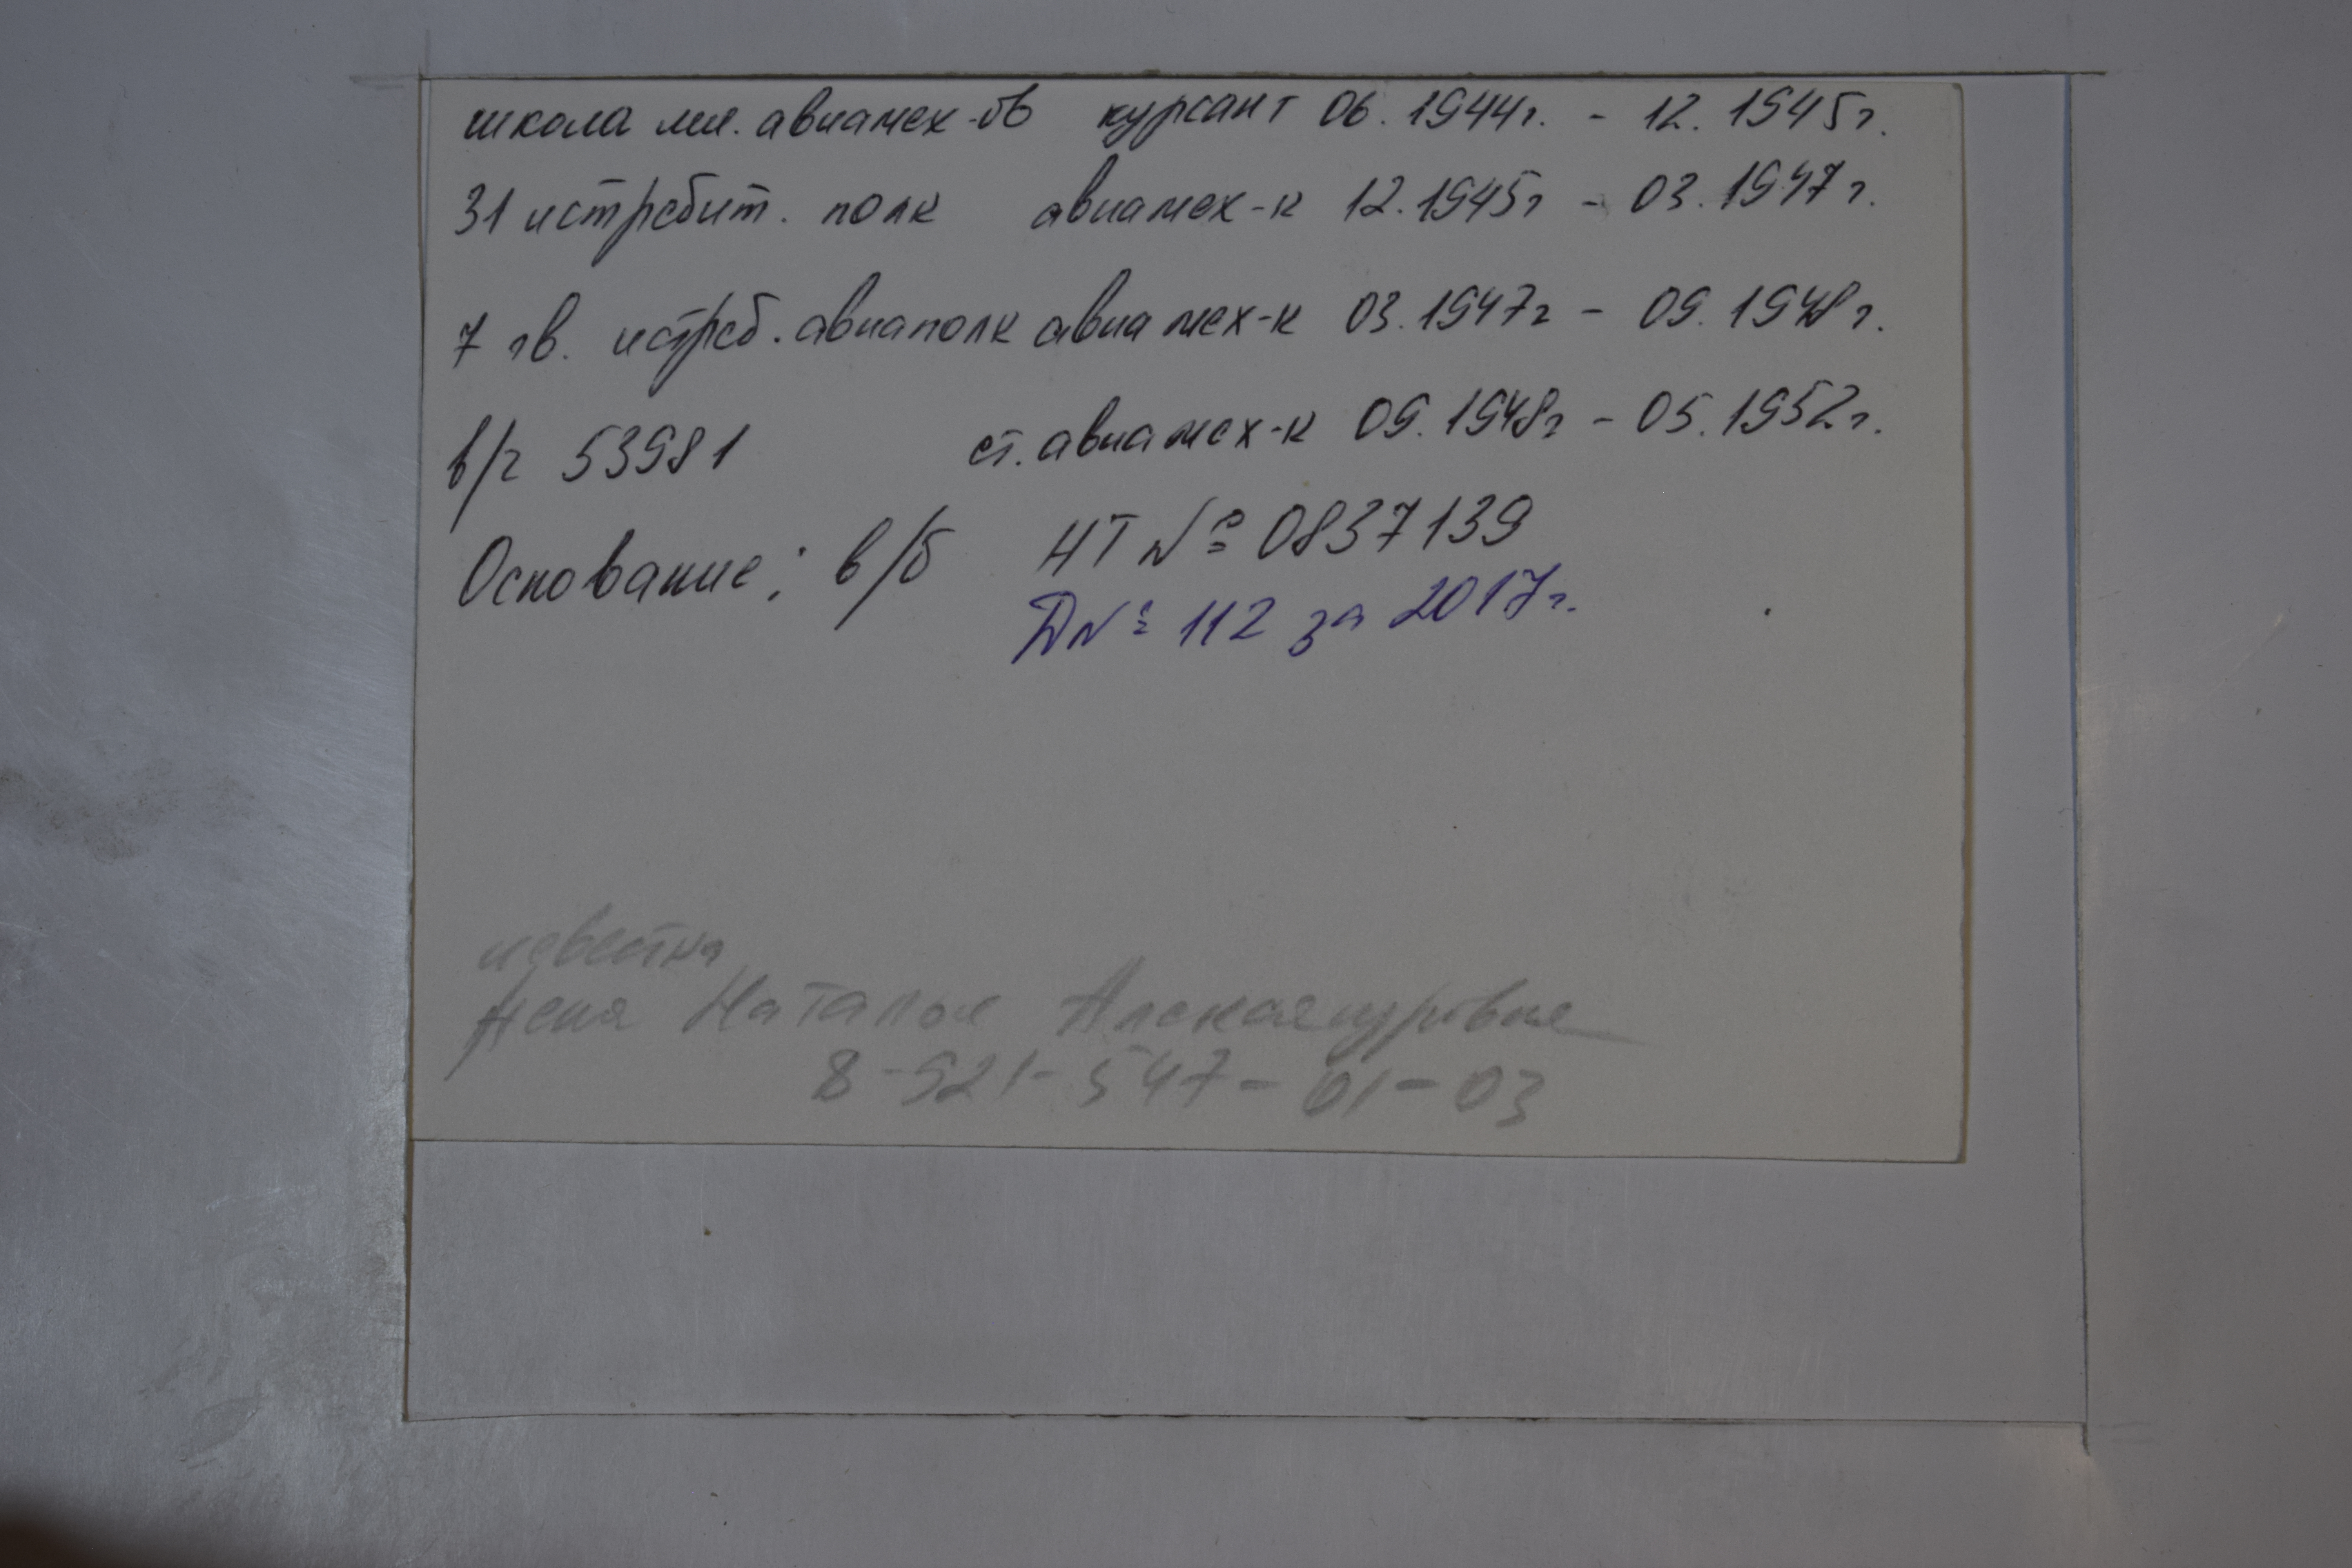 школа мл. авиамех-ов курсант 06.1944г. - 12.1945г.
31 истребит. полк авиамех-к 12.1945г - 03.1947г.
7 гв. истреб. авиаполк авиамех-к 03.1947г - 09.1948г.
в/ч 53981 ст. авиамех-к 09.1948г - 05.1952г.
Основание: в/б НТ № 0837139
Д№ 112 за 2017г.
известна
Наталья Александровна
8-921-547-01-03